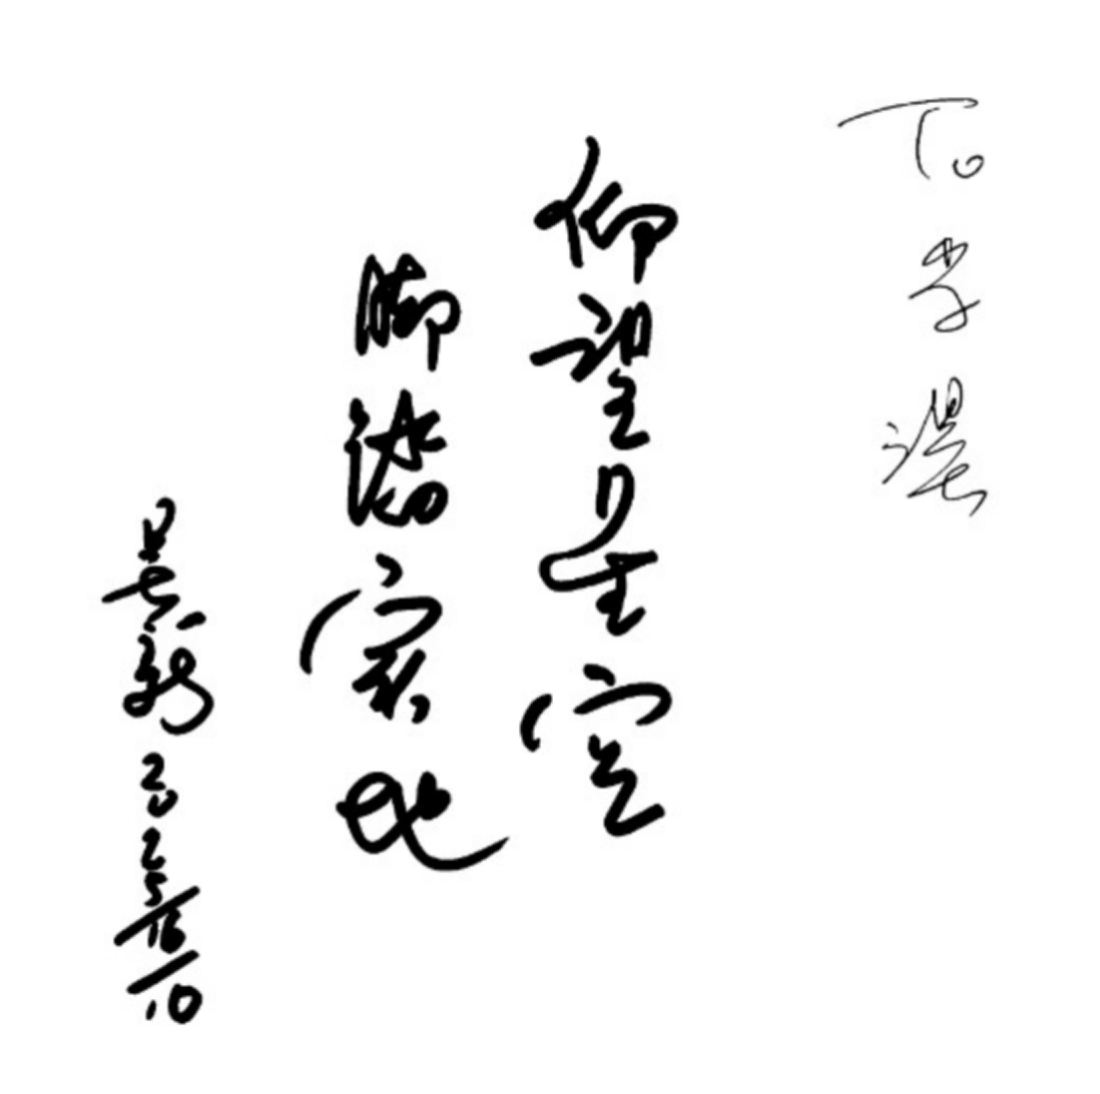 To 学
仰望星空
脚踏实地
吴新 2025/16/10